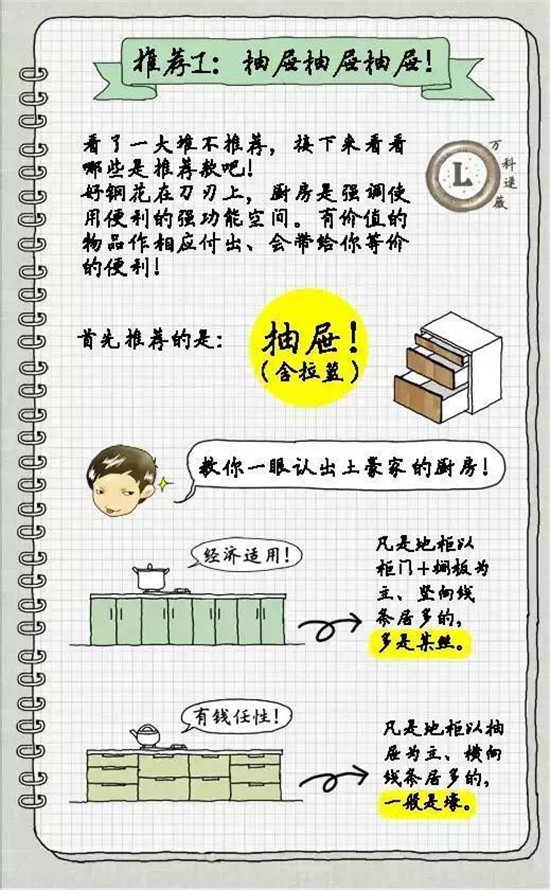 推荐1：抽屉抽屉抽屉！
看了一大堆不推荐，接下来看看
哪些是推荐款吧！
好钢花在刀刃上，厨房是强调使
用便利的强功能空间。有价值的
物品作相应付出、会带给你等价
的便利！
L
万科逯薇
首先推荐的是：
抽屉！
（含拉篮）
教你一眼认出土豪家的厨房！
经济适用！
凡是地柜以
柜门+搁板为
主、竖向线
条居多的，
多是某丝。
有钱任性！
凡是地柜以抽
屉为主、横向
线条居多的，
一般是壕。